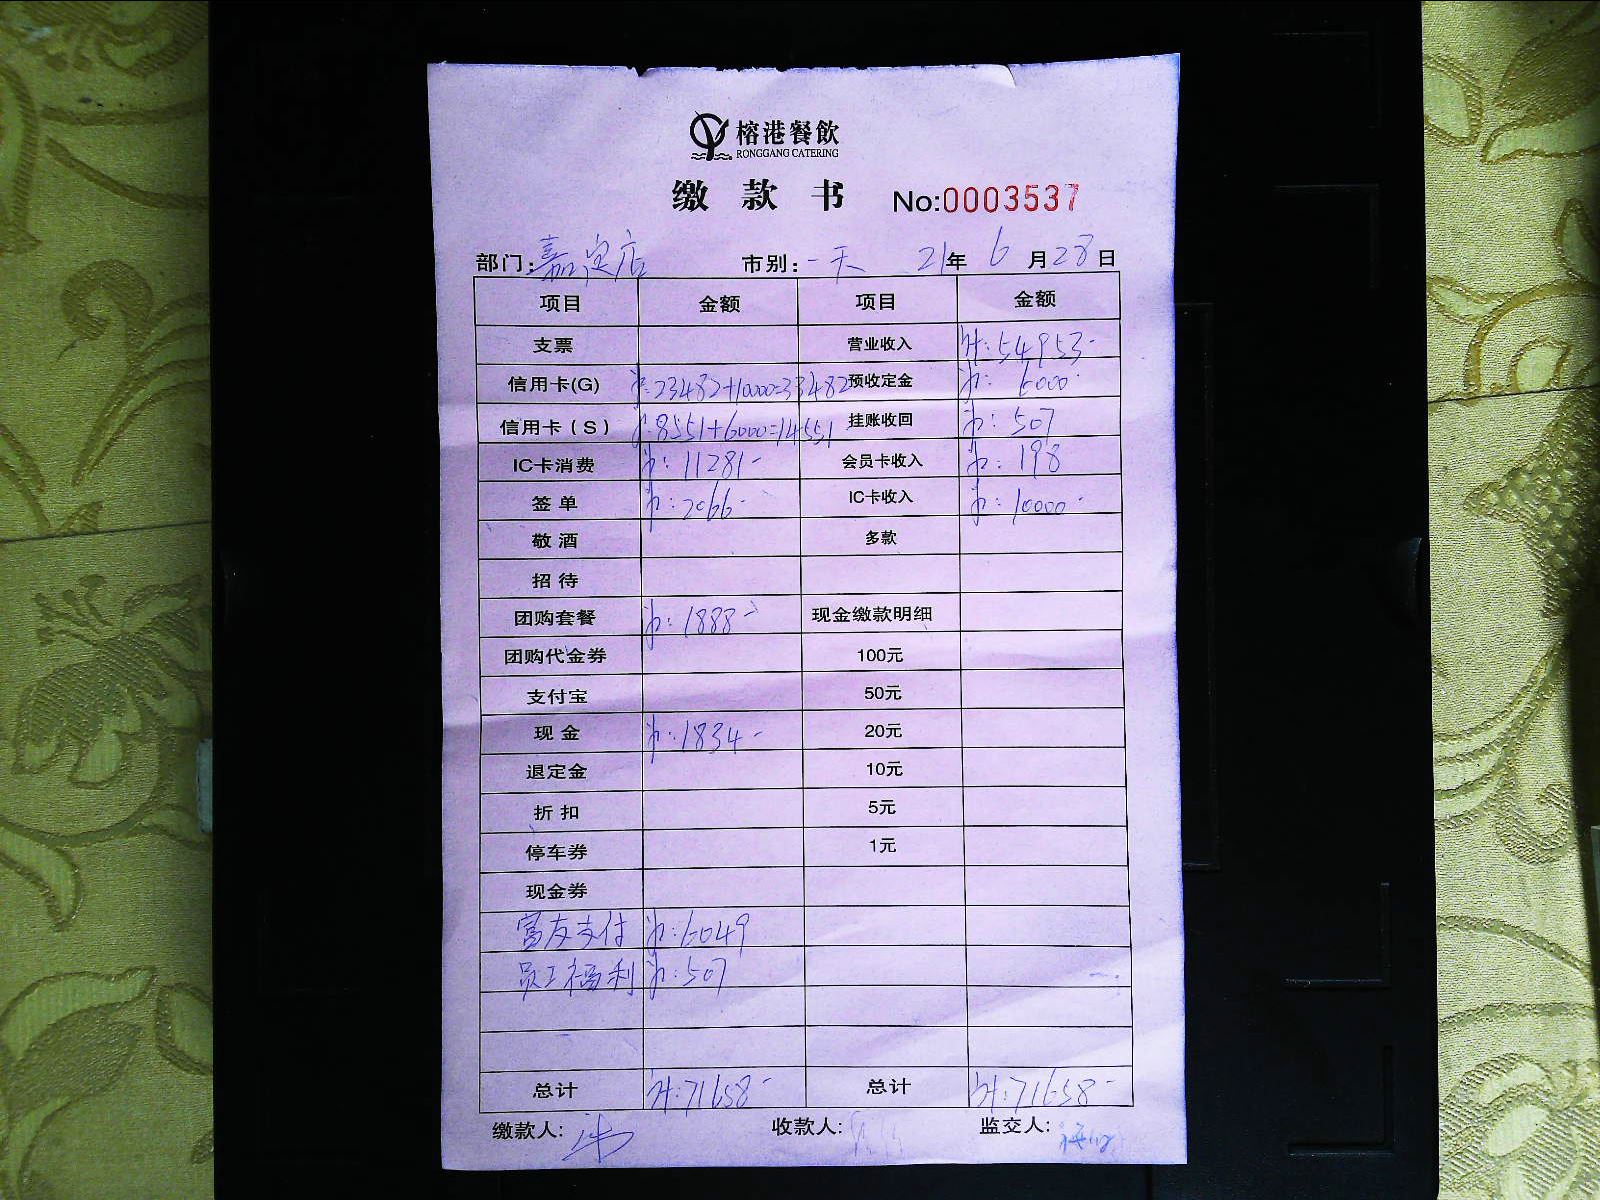 榕港餐飲
RONGGANG CATERING
缴款书 No:0003537
部门:嘉定店 市别:一天 21年6月28日
项目 金额 项目 金额
支票 营业收入 计:54953-
信用卡(G) 计:23482+10000=33482 预收定金 计:6000-
信用卡(S) 计:8551+6000=14551 挂账收回 计:507
IC卡消费 计:11281- 会员卡收入 计:198
签单 计:2066- IC卡收入 计:10000-
敬酒 多款
招待
团购套餐 计:1888- 现金缴款明细
团购代金券 100元
支付宝 50元
现金 计:1834- 20元
退定金 10元
折扣 5元
停车券 1元
现金券
富友支付 计:6049
员工福利 计:507
总计 计:71658- 总计 计:71658-
缴款人: 收款人: 监交人: